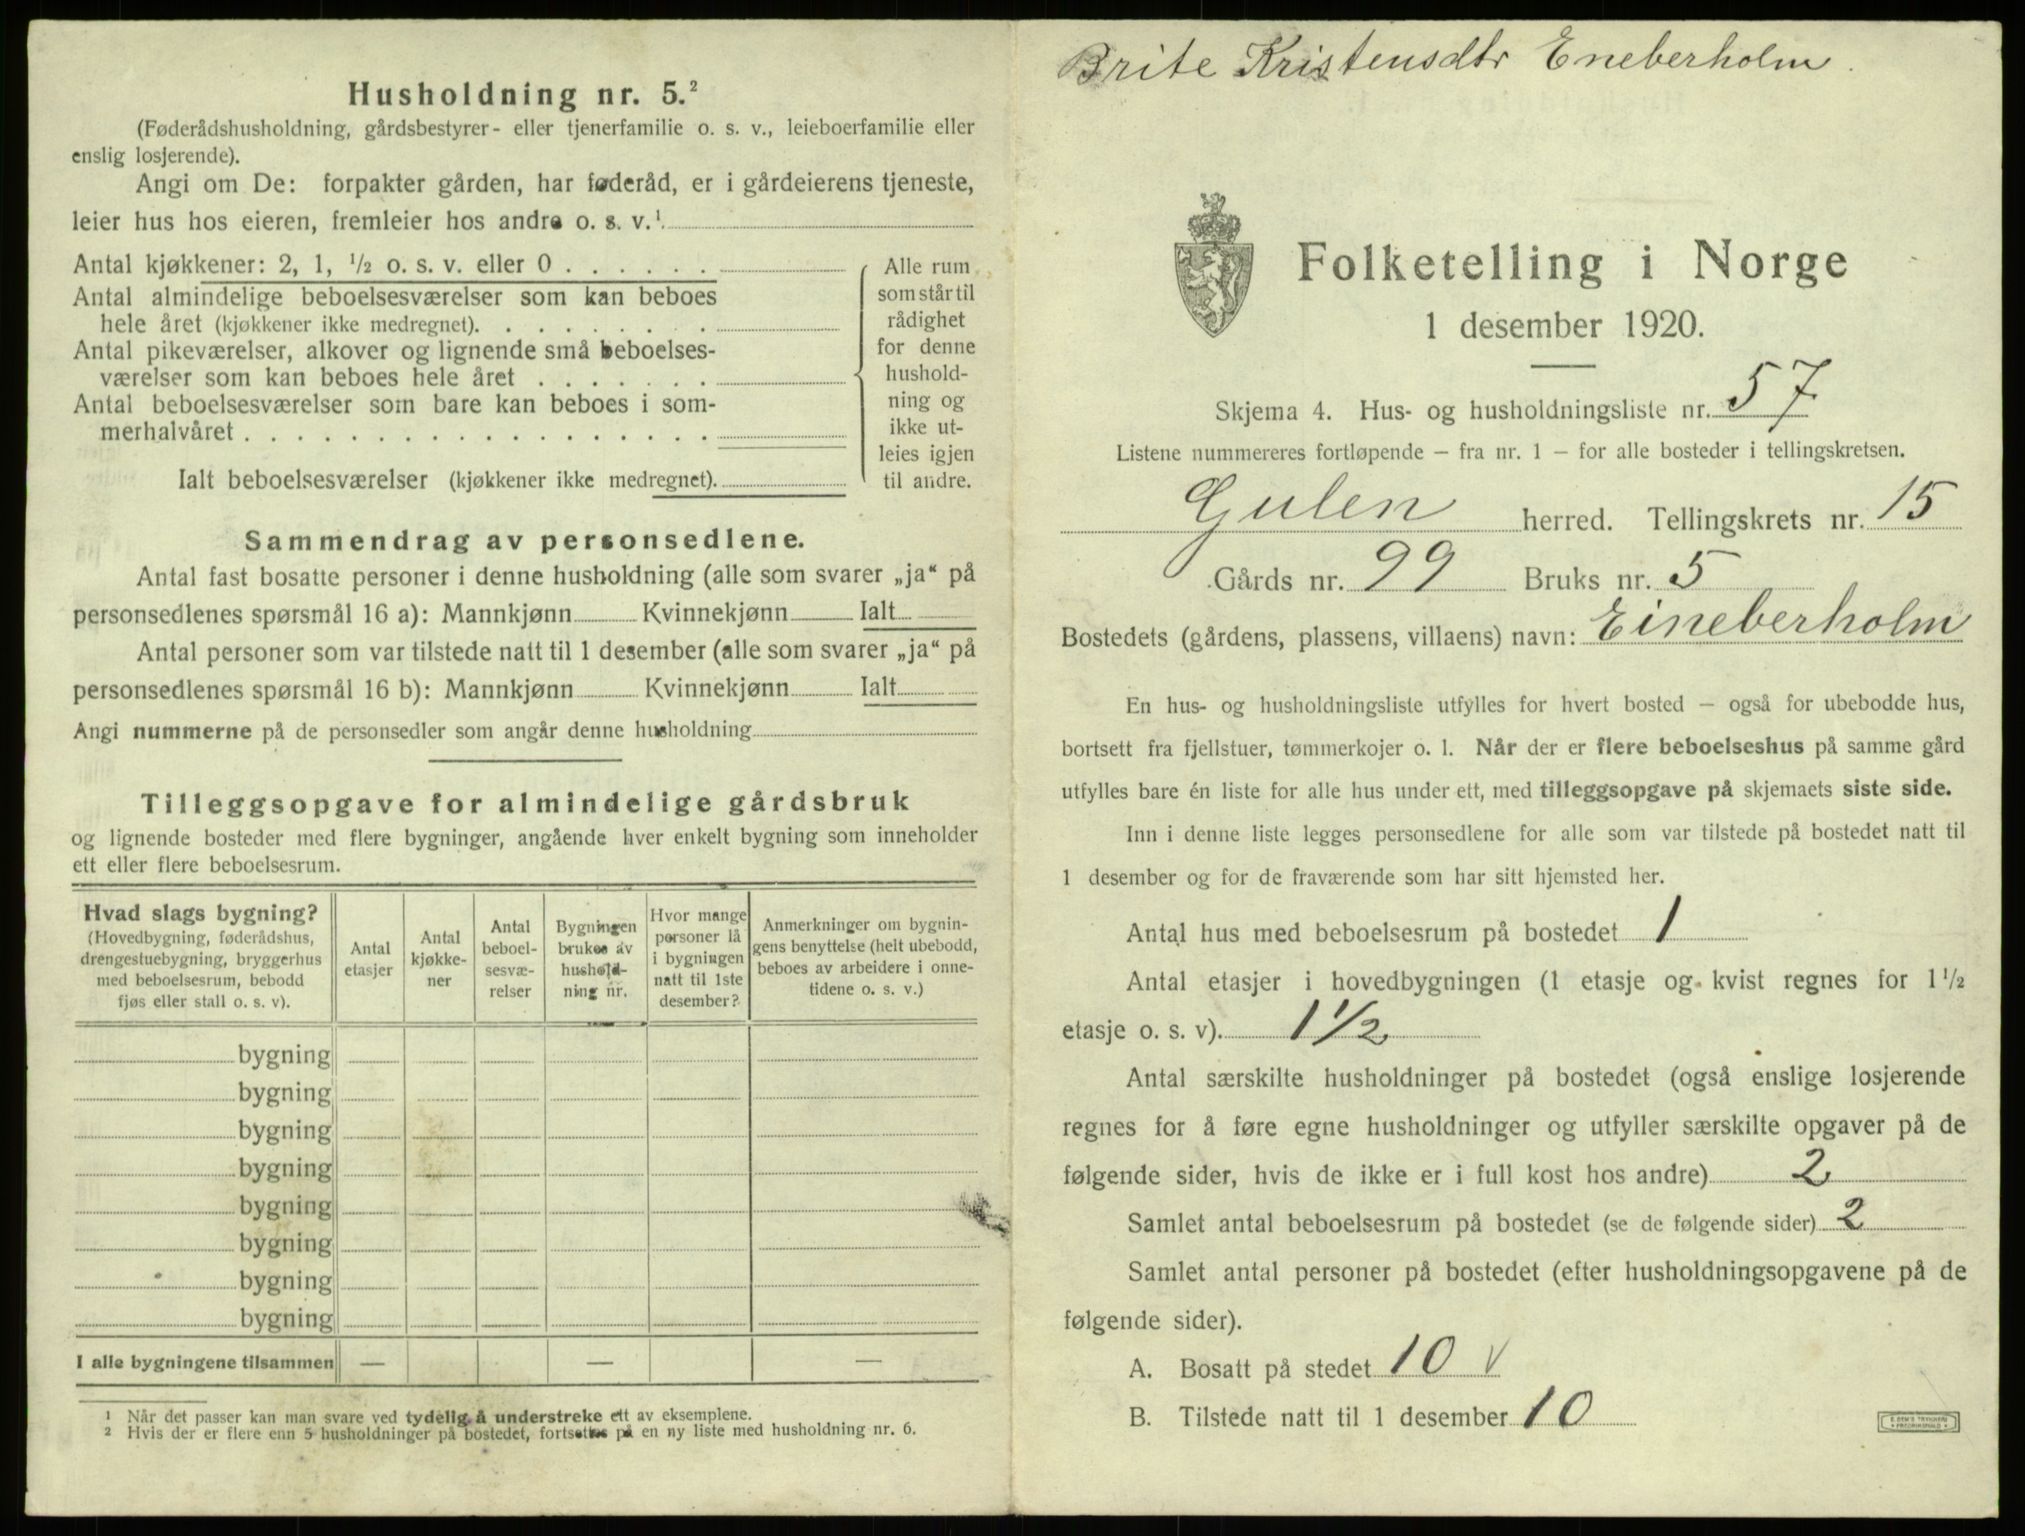 Husholdning nr. 5.²
(Føderådshusholdning, gårdsbestyrer- eller tjenerfamilie o. s. v., leieboerfamilie eller
enslig losjerende).
Angi om De: forpakter gården, har føderåd, er i gårdeierens tjeneste,
leier hus hos eieren, fremleier hos andre o. s. v.¹
Antal kjøkkener: 2, 1, ½ o. s. v. eller 0 . . . . . .
Antal almindelige beboelsesværelser som kan beboes
hele året (kjøkkener ikke medregnet). . . . . . . . .
Antal pikeværelser, alkover og lignende små beboelses-
værelser som kan beboes hele året . . . . . . .
Antal beboelsesværelser som bare kan beboes i som-
merhalvåret . . . . . . . . . . . . . . . . . .
Ialt beboelsesværelser (kjøkkener ikke medregnet).
Alle rum
som står til
rådighet
for denne
hushold-
ning og
ikke ut-
leies igjen
til andre.
Sammendrag av personsedlene.
Antal fast bosatte personer i denne husholdning (alle som svarer „ja“ på
personsedlenes spørsmål 16 a): Mannkjønn Kvinnekjønn Ialt
Antal personer som var tilstede natt til 1 desember (alle som svarer „ja“ på
personsedlenes spørsmål 16 b): Mannkjønn Kvinnekjønn Ialt
Angi nummerne på de personsedler som angår denne husholdning
Tilleggsopgave for almindelige gårdsbruk
og lignende bosteder med flere bygninger, angående hver enkelt bygning som inneholder
ett eller flere beboelsesrum.
Hvad slags bygning?
(Hovedbygning, føderådshus,
drengestuebygning, bryggerhus
med beboelsesrum, bebodd
fjøs eller stall o. s. v).
Antal
etasjer
Antal
kjøkke-
ner
Antal
beboel-
sesvæ-
relser
Bygningen
brukes av
hushold-
ning nr.
Hvor mange
personer lå
i bygningen
natt til 1ste
desember?
Anmerkninger om bygnin-
gens benyttelse (helt ubebodd,
beboes av arbeidere i onne-
tidene o. s. v.)
bygning
bygning
bygning
bygning
bygning
bygning
bygning
bygning
I alle bygningene tilsammen — — —
¹ Når det passer kan man svare ved tydelig å understreke ett av eksemplene.
² Hvis der er flere enn 5 husholdninger på bostedet, fortsettes på en ny liste med husholdning nr. 6.
Brite Kristensdtr Eneberholm.
Folketelling i Norge
1 desember 1920.
Skjema 4. Hus- og husholdningsliste nr. 57
Listene nummereres fortløpende — fra nr. 1 — for alle bosteder i tellingskretsen.
Gulen herred. Tellingskrets nr. 15
Gårds nr. 99 Bruks nr. 5
Bostedets (gårdens, plassens, villaens) navn: Eineberholm
En hus- og husholdningsliste utfylles for hvert bosted — også for ubebodde hus,
bortsett fra fjellstuer, tømmerkojer o. l. Når der er flere beboelseshus på samme gård
utfylles bare én liste for alle hus under ett, med tilleggsopgave på skjemaets siste side.
Inn i denne liste legges personsedlene for alle som var tilstede på bostedet natt til
1 desember og for de fraværende som har sitt hjemsted her.
Antal hus med beboelsesrum på bostedet 1
Antal etasjer i hovedbygningen (1 etasje og kvist regnes for 1½
etasje o. s. v). 1½
Antal særskilte husholdninger på bostedet (også enslige losjerende
regnes for å føre egne husholdninger og utfyller særskilte opgaver på de
følgende sider, hvis de ikke er i full kost hos andre) 2
Samlet antal beboelsesrum på bostedet (se de følgende sider) 2
Samlet antal personer på bostedet (efter husholdningsopgavene på de
følgende sider).
A. Bosatt på stedet 10 v
B. Tilstede natt til 1 desember 10